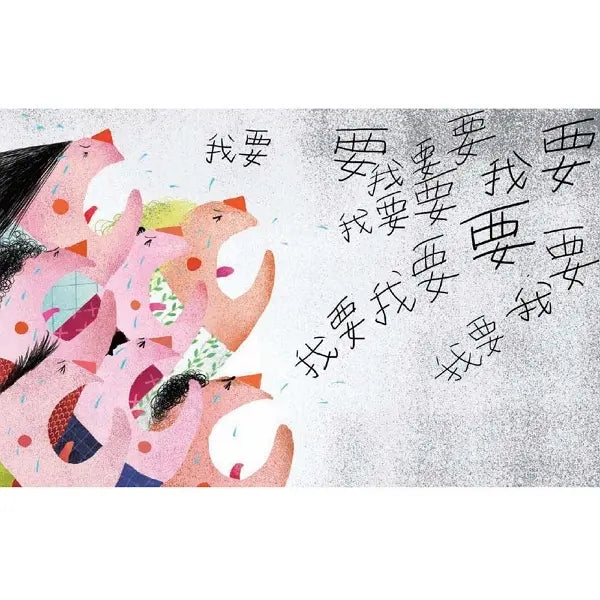 我要
要
我要要
我要
我要要
要
我要
我要
我要
我要